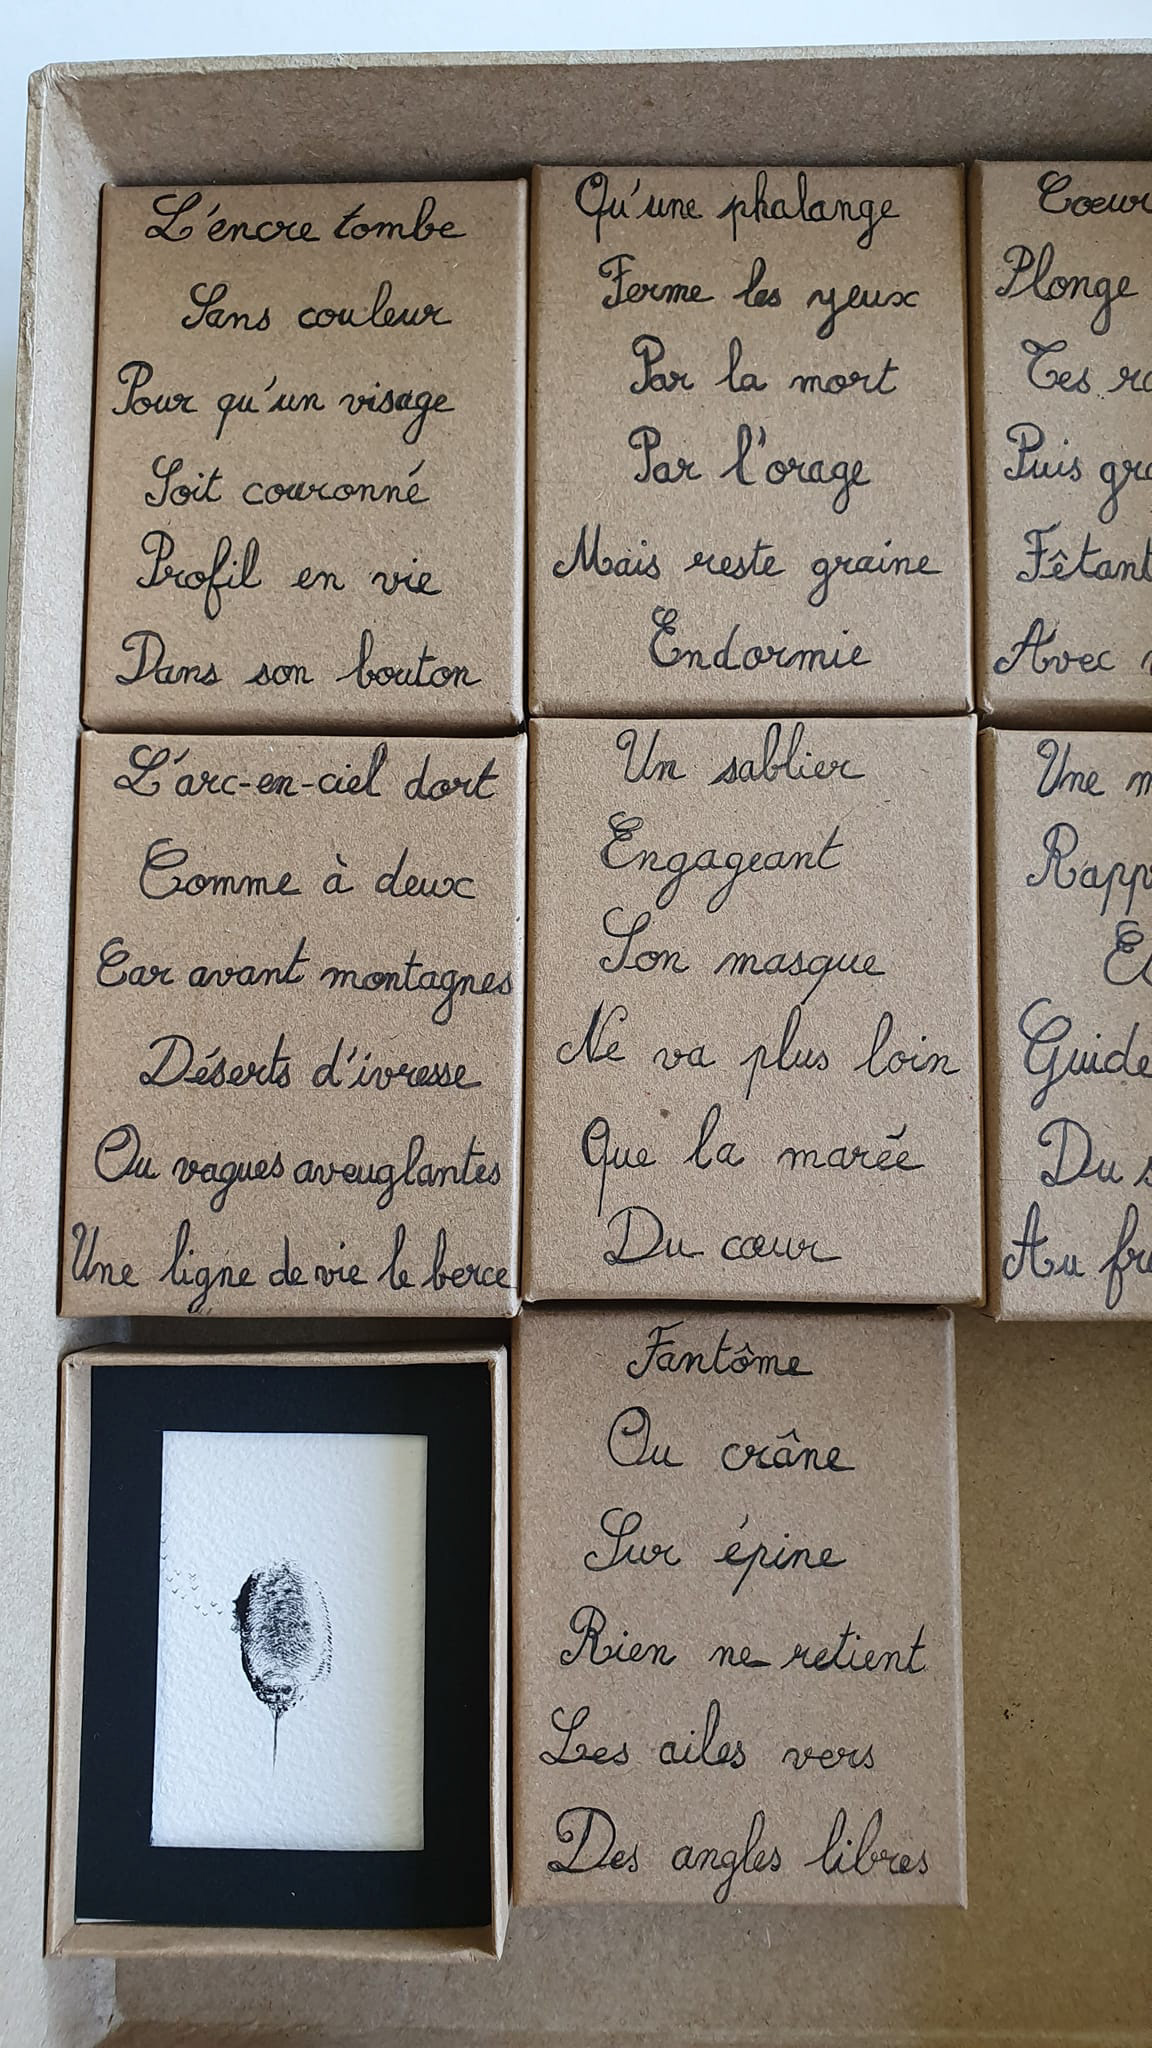 L'encre tombe
Sans couleur
Pour qu'un visage
Soit couronné
Profil en vie
Dans son bouton
Qu'une phalange
Ferme les yeux
Par la mort
Par l'orage
Mais reste graine
Endormie
Coeur
Plonge
Tes
Puis
Fêtant
Avec
L'arc-en-ciel dort
Comme à deux
Car avant montagnes
Déserts d'ivresse
Ou vagues aveuglantes
Une ligne de vie le berce
Un sablier
Engageant
Son masque
Ne va plus loin
Que la marée
Du cœur
Une
Guide
Du
Au
Fantôme
Ou crâne
Sur épine
Rien ne retient
Les ailes vers
Des angles libres